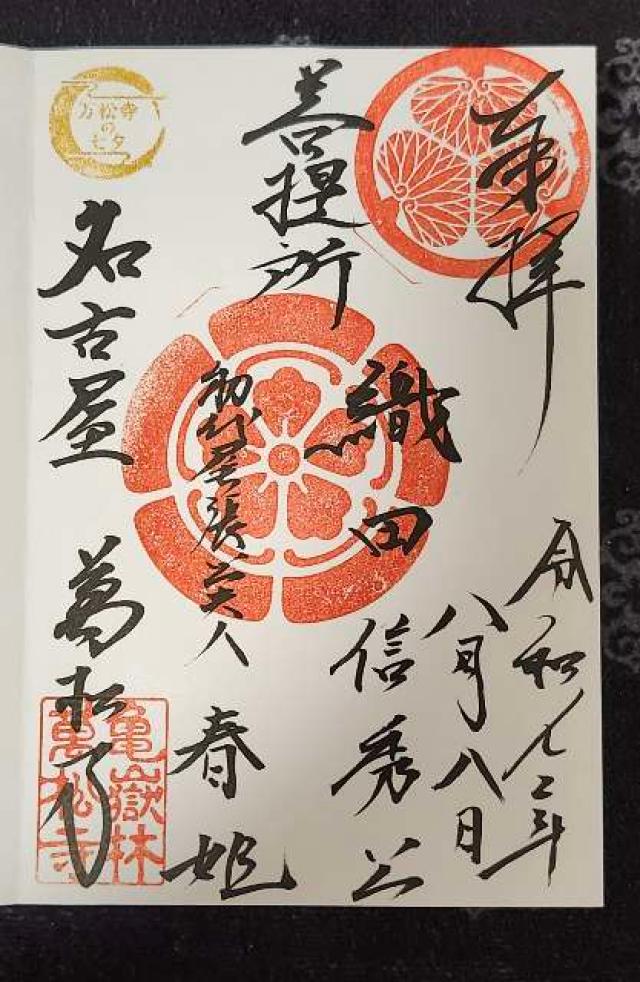 奉拝
令和七年
八月八日
菩提所
織田信秀公
初代尾張夫人
春姫
名古屋 萬松寺
万松寺
の
七夕
亀嶽林
萬松寺